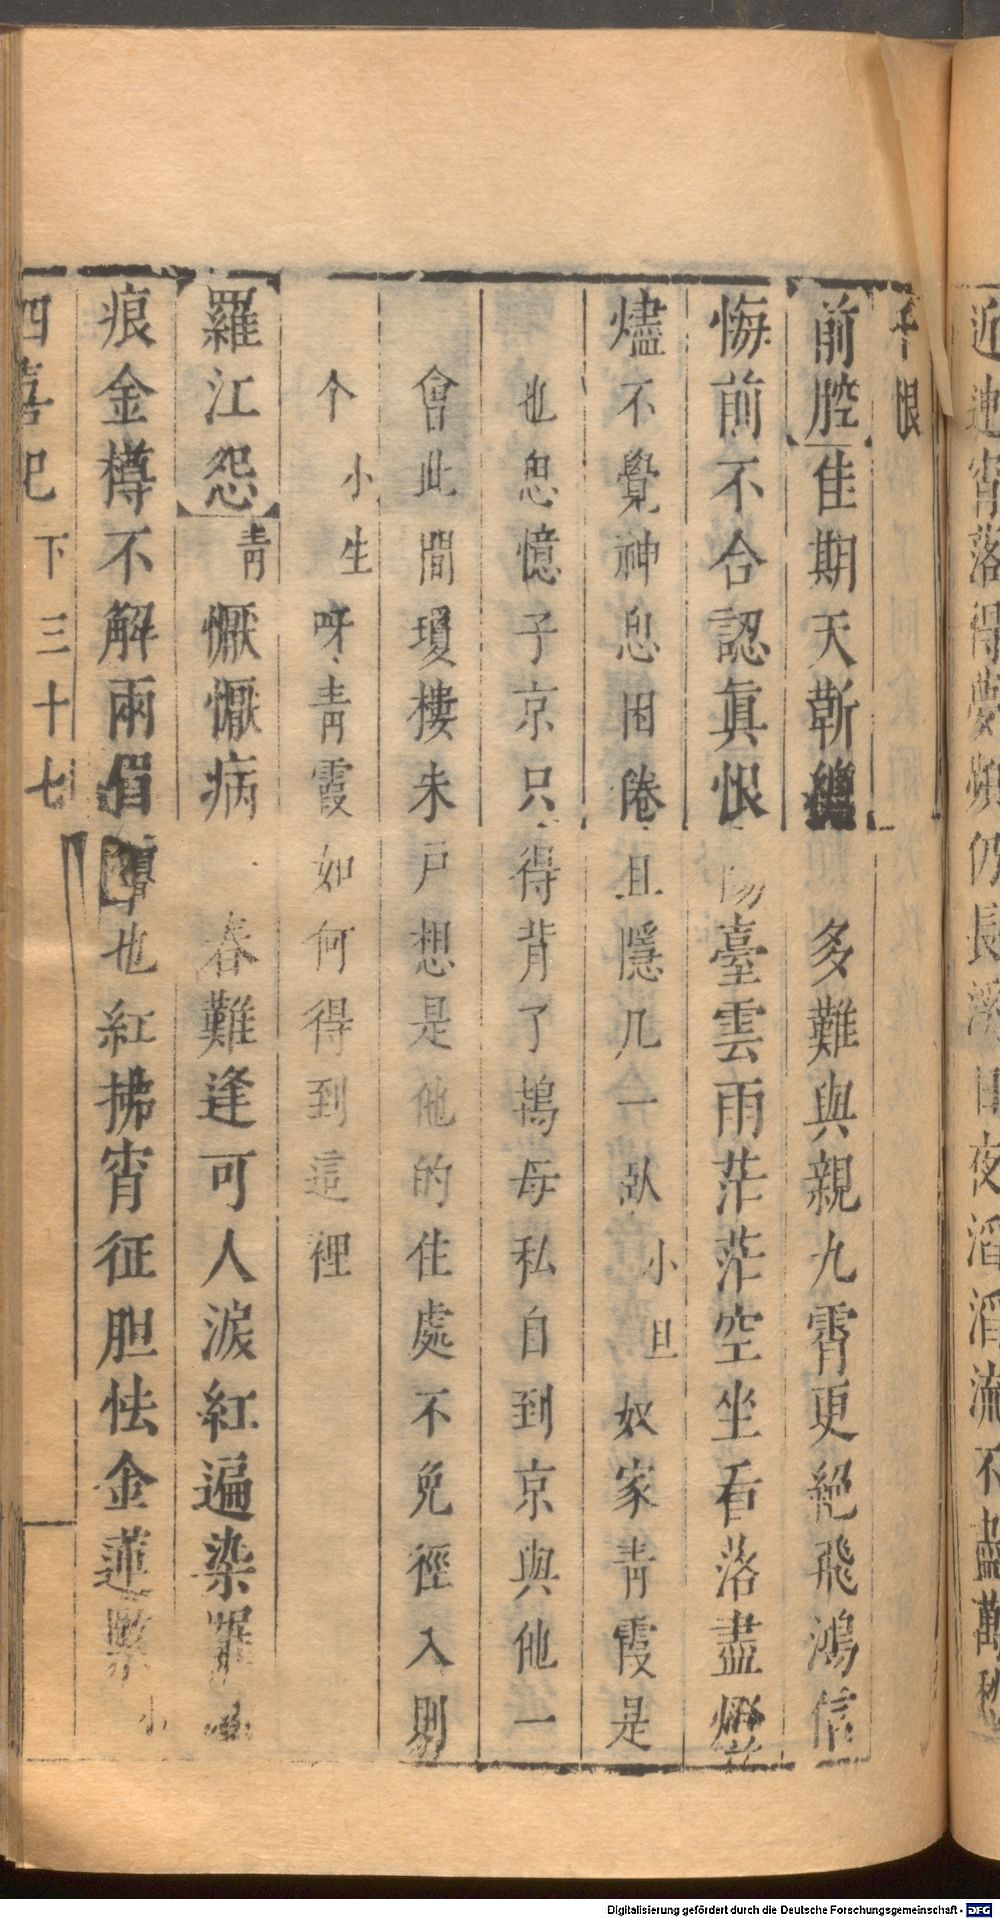 近連宵落得夢頻仍長溪日夜滔滔流不盡萬
千恨
前腔佳期天靳 多難與親九霄更絕飛鴻信
悔前不合認眞恨 陽臺雲雨茫茫空坐看落盡燈
燼不覺神思困倦且隱几一臥 小旦 奴家靑霞是
也思憶子京只得背了鴇母私自到京與他一
會此間瓊樓朱戶想是他的住處不免徑入則
个 小生 呀靑霞如何得到這裡
羅江怨 靑 懨懨病 春難逢可人淚紅遍染羅
痕金樽不解兩眉 也紅拂宵征胆怯金蓮 小
四喜記 下 三十七
Digitalisierung gefördert durch die Deutsche Forschungsgemeinschaft - DFG